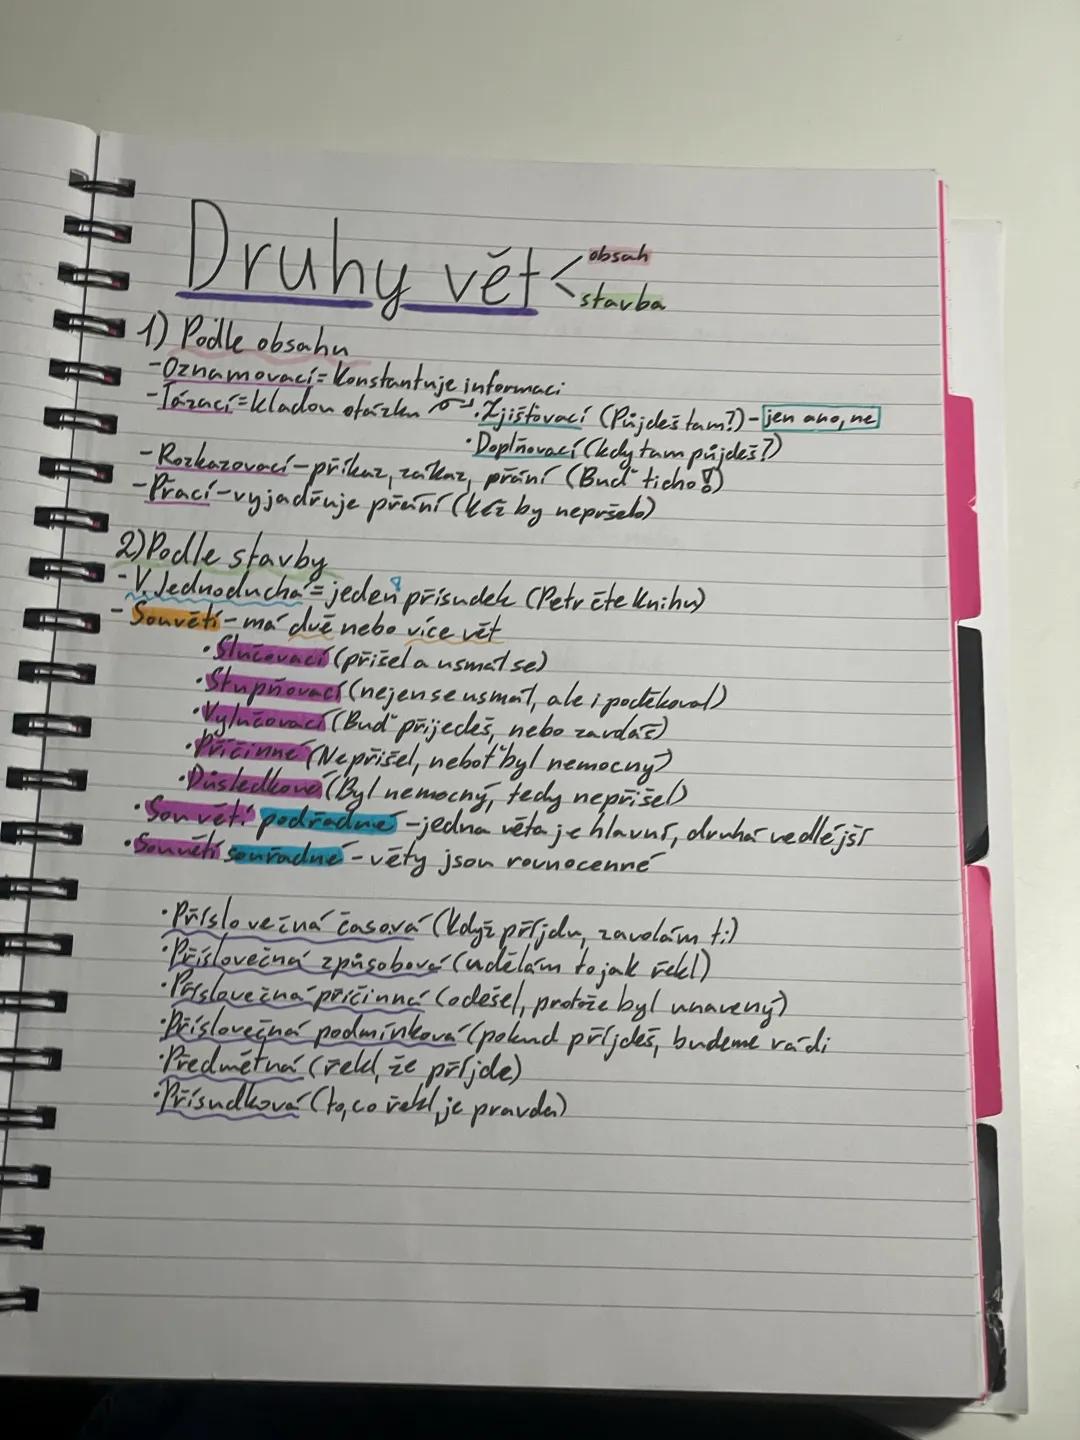 Druhy vět
obsah
stavba
1) Podle obsahu
-Oznamovací = Konstantuje informaci
-Tázací = kladou otázku
• Zjišťovací (Půjdeš tam?) - jen ano, ne
• Doplňovací (kdy tam půjdeš?)
- Rozkazovací - příkaz, zákaz, přání (Buď ticho!)
- Prací - vyjadřuje přání (kéž by nepršelo)
2) Podle stavby
- V. Jednoduchá = jeden přísudek (Petr čte knihu)
- Souvětí - má dvě nebo více vět
• Slučovací (přišel a usmál se)
• Stupňovací (nejen se usmál, ale i poděkoval)
• Vylučovací (Buď přijedeš, nebo zavoláš)
• Příčinné (Nepřišel, neboť byl nemocný)
• Důsledkové (Byl nemocný, tedy nepřišel)
• Souvětí podřadné - jedna věta je hlavní, druhá vedlejší
• Souvětí souřadné - věty jsou rovnocenné
• Příslovečná časová (Když příjdu, zavolám ti)
• Příslovečná způsobová (udělám to jak řekl)
• Příslovečná příčinná (odešel, protože byl unavený)
• Příslovečná podmínková (pokud příjdeš, budeme rádi
• Předmětná (řekl, že příjde)
• Přísudková (to, co řekl, je pravda)